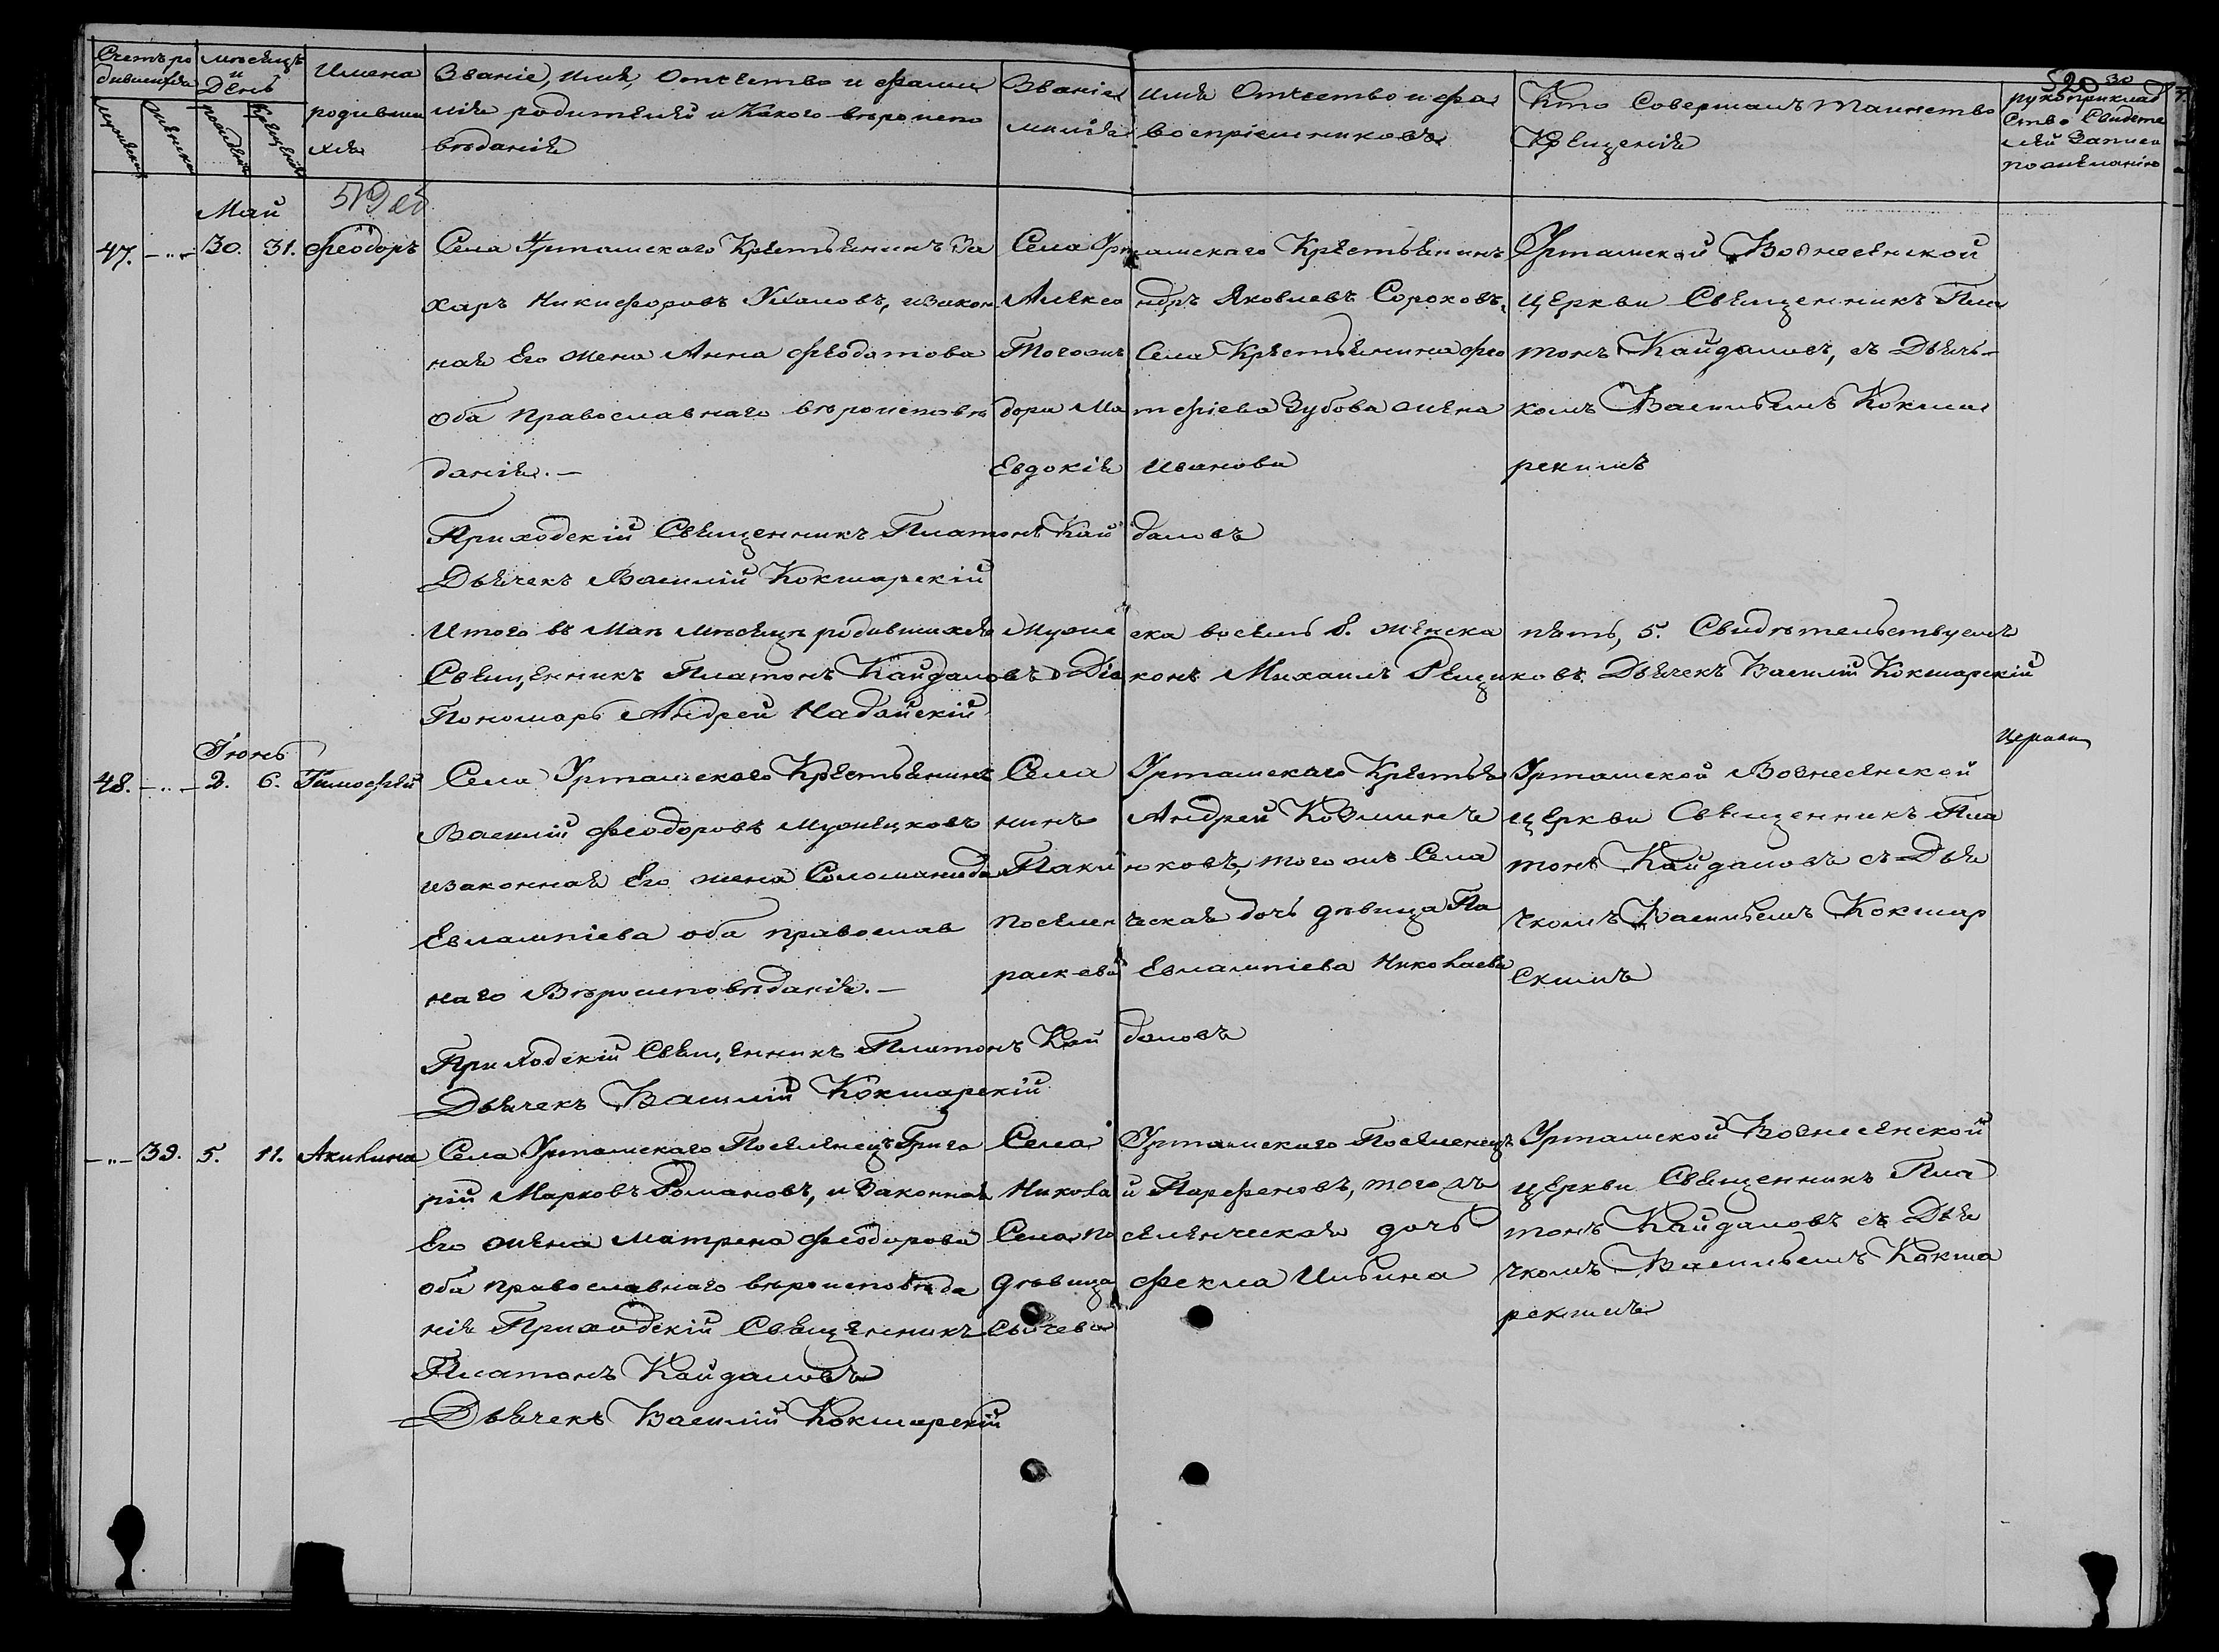 520 30
Счетъ ро
дившихся
мужеска
женска
мѣсяцъ
и
День
рожденія
Крещенія
Имена
родивши
хся
Званіе, имя, Отчество и фами
лія родителей и Какого вѣроиспо
вѣданія
Званіе имя Отчество и фа
милія воспріемниковъ
Кто Совершалъ таинство
Крещенія
рукоприклад
ство Свидете
лей Записи
по желанію
Май
519 об
47. -"- 30. 31. Феодоръ
Села Уртамскаго Крестьянинъ За
харъ Никифоровъ Ухановъ, и закон
ная Его жена Анна Феодотова
оба православнаго вѣроисповѣ
данія. -
Села Уртамскаго Крестьянинъ
Александръ Яковлевъ Сороковъ,
Тогожъ Села Крестьянина Фео
дора Матфіева Зубова жена
Евдокія Иванова
Уртамской Вознесенской
церкви Священникъ Пла
тонъ Кайдаловъ, съ Дьяч-
комъ Васильемъ Кокша
рскимъ
Приходскій Священникъ Платонъ Кайдаловъ
Дьячекъ Василій Кокшарскій
Итого въ Маѣ мѣсяцѣ родившихся Мужеска восемь 8. женска пять, 5. Свидѣтельствуемъ
Священникъ Платонъ Кайдаловъ Діаконъ Михаилъ Рещиковъ Дьячекъ Василій Кокшарскій
Пономарь Андрей Надойскій
Іюнь
48. -"- 2. 6. Тимофей
Села Уртамскаго Крестьянинъ
Василій Феодоровъ Мужецковъ
и законная Его жена Соломанида
Евлампіева оба православ
наго Вѣроисповѣданія. -
Села Уртамскаго Крестья
нинъ Андрей Козминъ
Пакулюковъ, того жъ Села
поселенческая дочь дѣвица Па
раскева Евлампіева Николаева
Уртамской Вознесенской
церкви Священникъ Пла
тонъ Кайдаловъ съ Дья
чкомъ Васильемъ Кокшар
скимъ
Приходскій Священникъ Платонъ Кайдаловъ
Дьячекъ Василій Кокшарскій
-"- 39. 5. 11. Акилина
Села Уртамскаго Поселенецъ Григо
рій Марковъ Романовъ, и Законная
Его жена Матрена Феодорова
оба православнаго вѣроисповѣда
нія Приходскій Священникъ
Платонъ Кайдаловъ
Дьячекъ Василій Кокшарскій
Села Уртамскаго Поселенецъ
Николай Парфеновъ, того жъ
Села поселенческая дочь
дѣвица Фекла Ильина
Сычева
Уртамской Вознесенской
церкви Священникъ Пла
тонъ Кайдаловъ съ Дья
чкомъ Васильемъ Кокша
рскимъ